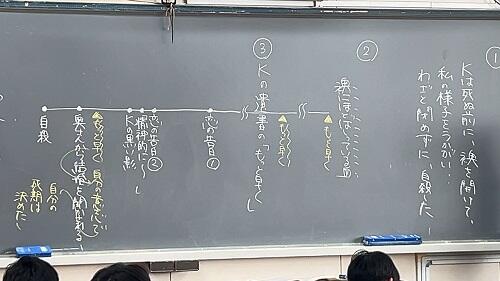 ①
Kは死ぬ前に、襖を開けて、
私の様子をうかがい…
わざと閉めずに、自殺した。
②
襖にほとばしっている血
③
Kの遺書の「もっと早く
もっと早く
もっと早く
恋の告白①
恋の告白②
精神的に〜
Kの黒い影
もっと早く
自分の意志で
奥さんから結婚を聞かされる
自分の
死期は
決めた
自殺